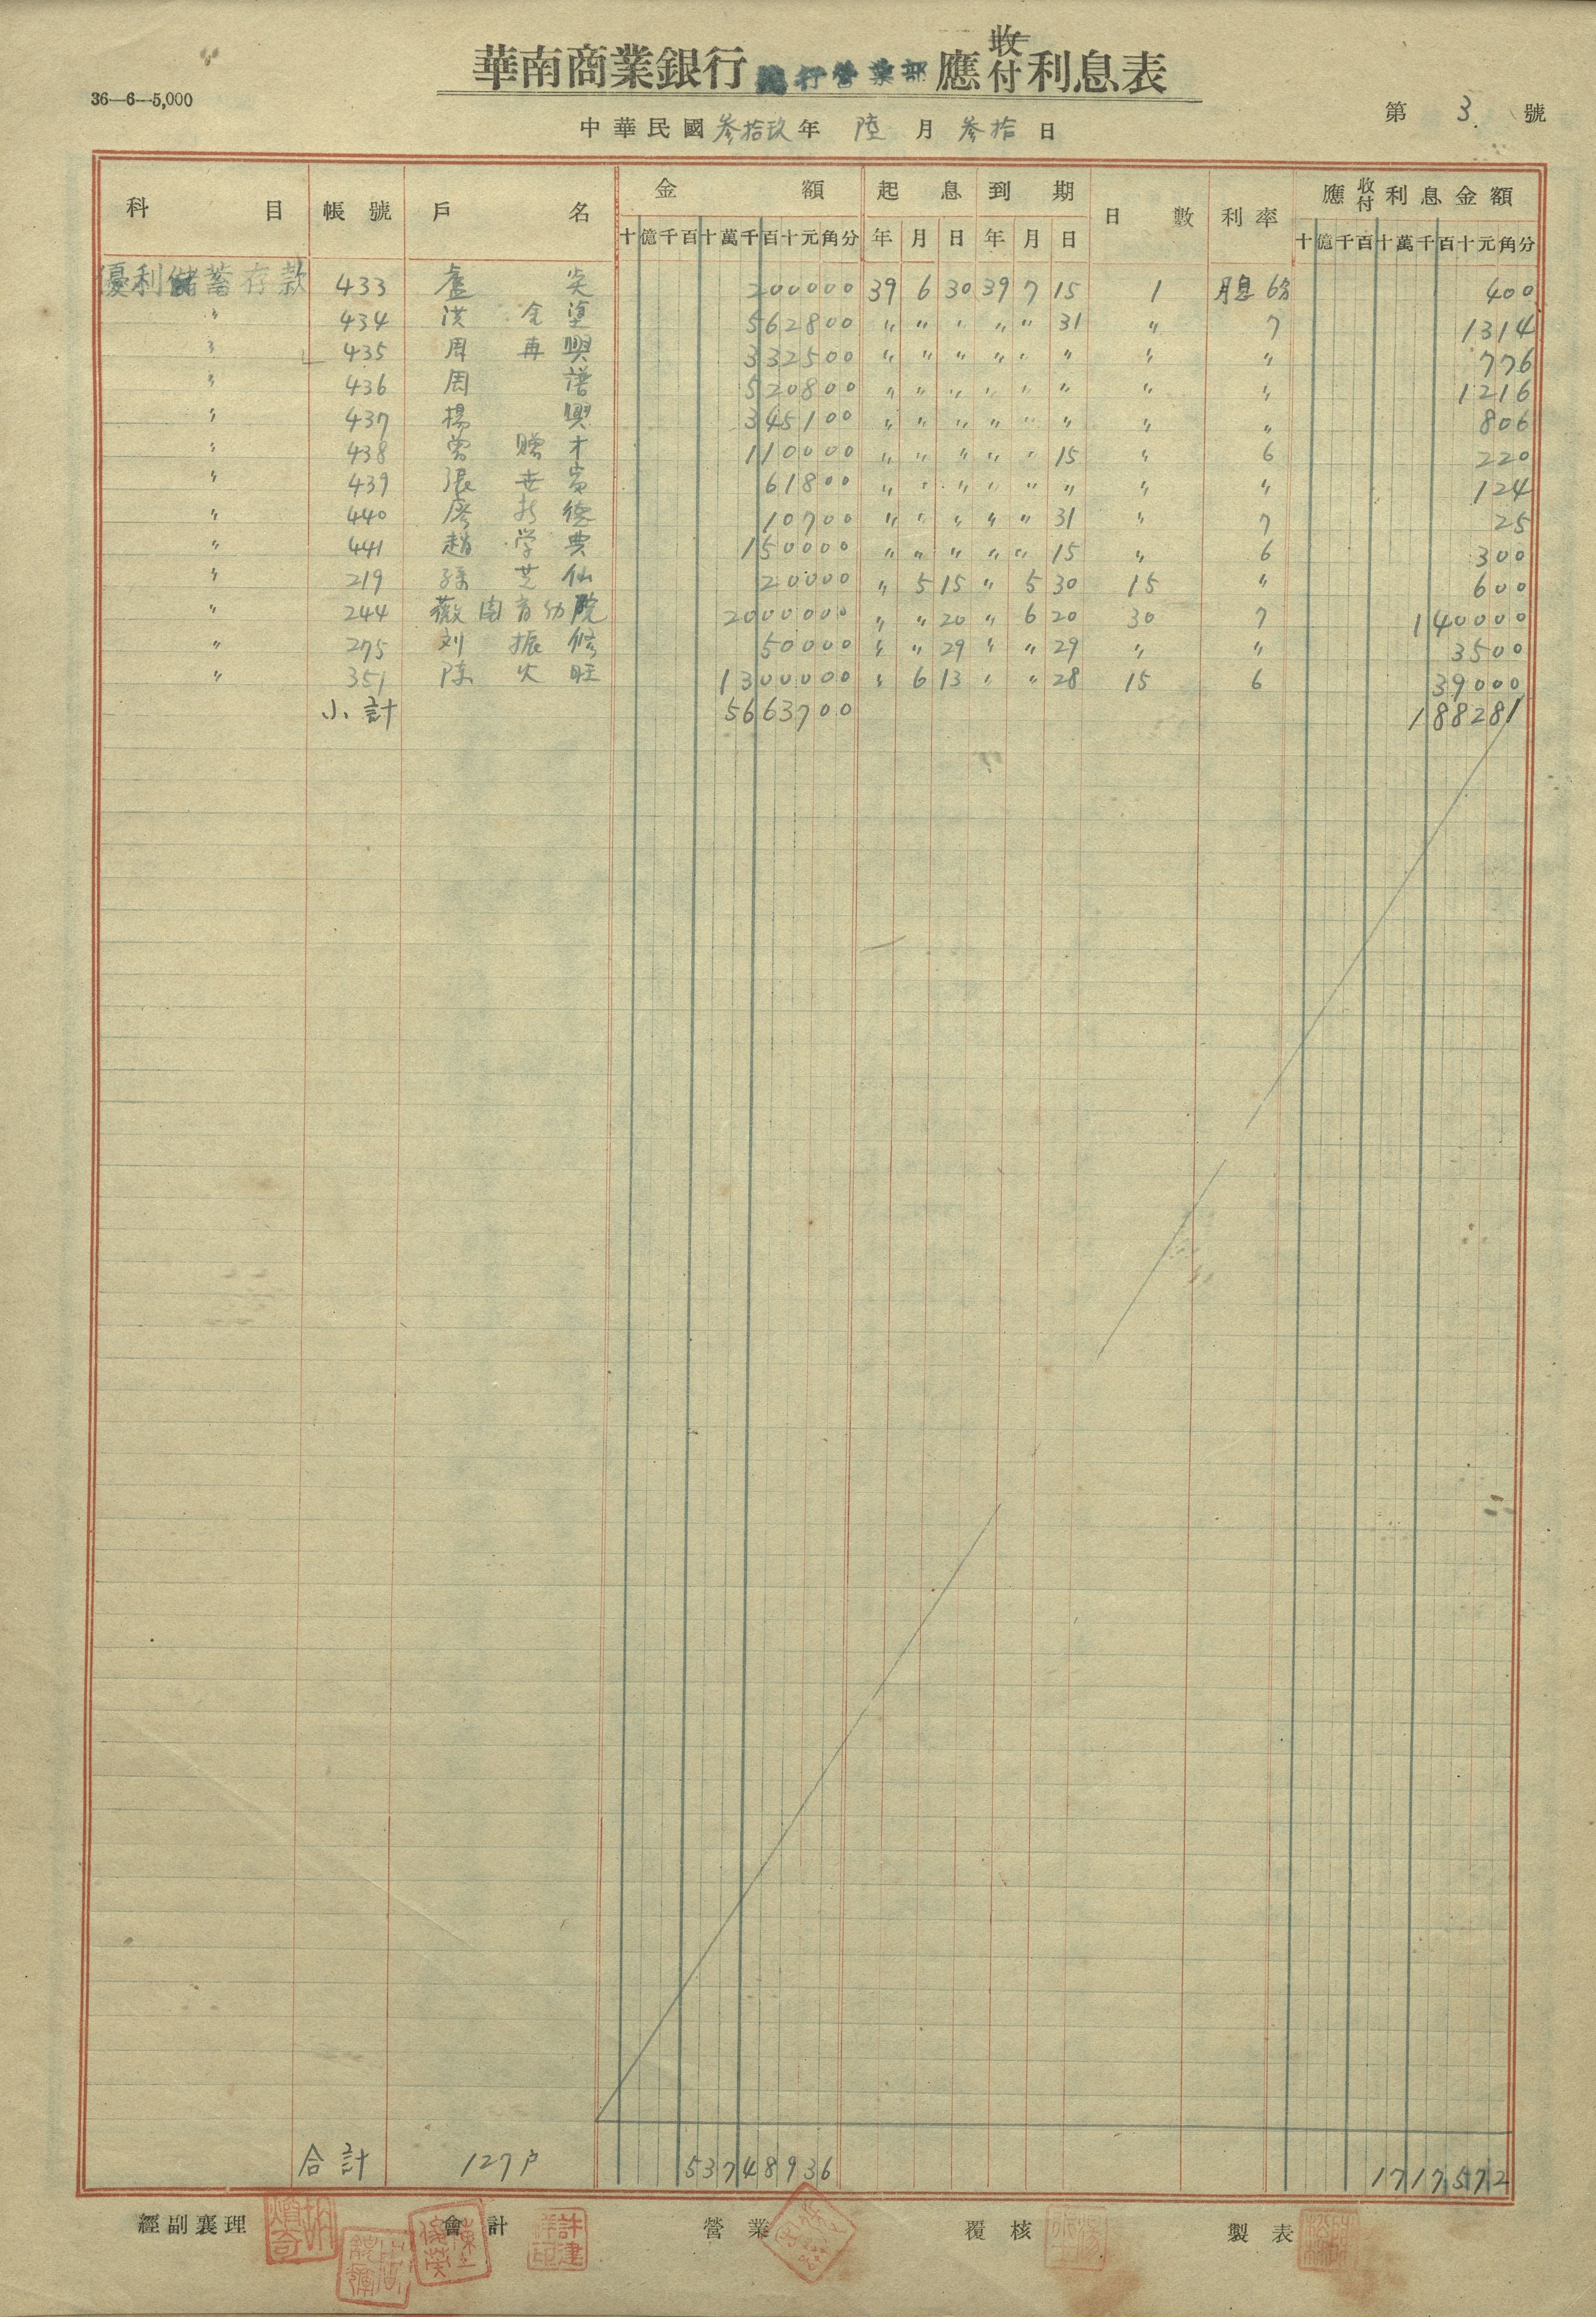 華南商業銀行 總行營業部 應收付利息表
36—6—5,000
中華民國參拾玖年 陸 月 參拾 日
第 3 號
科目 帳號 戶名 金額 起息 到期 日數 利率 應收付利息金額
十億千百十萬千百十元角分 年 月 日 年 月 日 十億千百十萬千百十元角分
優利儲蓄存款 433 盧 200000 39 6 30 39 7 15 1 月息 6分 400
〃 434 洪 金 562800 〃 〃 〃 〃 〃 31 〃 7 1314
〃 435 周 再 興 332500 〃 〃 〃 〃 〃 〃 〃 〃 776
〃 436 周 譜 520800 〃 〃 〃 〃 〃 〃 〃 〃 1216
〃 437 楊 興 345100 〃 〃 〃 〃 〃 〃 〃 〃 806
〃 438 曾 贈 才 110000 〃 〃 〃 〃 〃 15 〃 6 220
〃 439 張 世 61800 〃 〃 〃 〃 〃 〃 〃 〃 124
〃 440 廖 德 10700 〃 〃 〃 〃 〃 31 〃 7 25
〃 441 趙 学 典 150000 〃 〃 〃 〃 〃 15 〃 6 300
〃 219 孫 芝 仙 20000 〃 5 15 〃 5 30 15 〃 600
〃 244 薇閣育幼院 2000000 〃 〃 20 〃 6 20 30 7 140000
〃 275 刘 振 修 50000 〃 〃 29 〃 〃 29 〃 〃 3500
〃 351 陳 火 旺 1300000 〃 6 13 〃 〃 28 15 6 39000
小計 5663700 188281
合計 127戶 53748936 1717572
經副襄理 會計 營業 覆核 製表
許建祥印